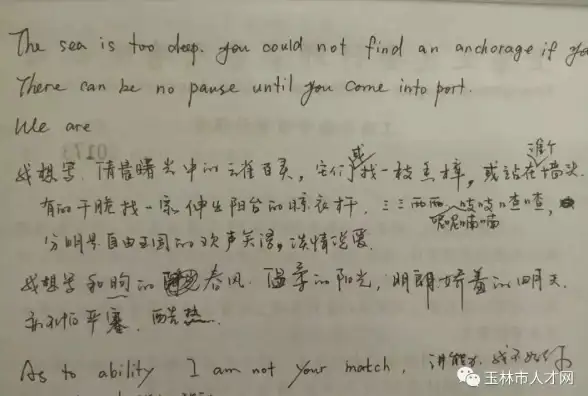 The sea is too deep. you could not find an anchorage if you
There can be no pause until you come into port.
We are
我想写清晨曙光中的云雀百灵，它们或找一枝香樟，或站在谁个墙头
有的干脆找一家伸出阳台的晾衣杆，三三两两，吱吱喳喳，
呢呢喃喃
分明是自由王国的欢声笑语，谈情说爱
我想写和煦的春风，温柔的阳光，明朗娇羞的四月天
严寒，酷热.
As to ability I am not your match, 讲能力，我不如你
玉林市人才网